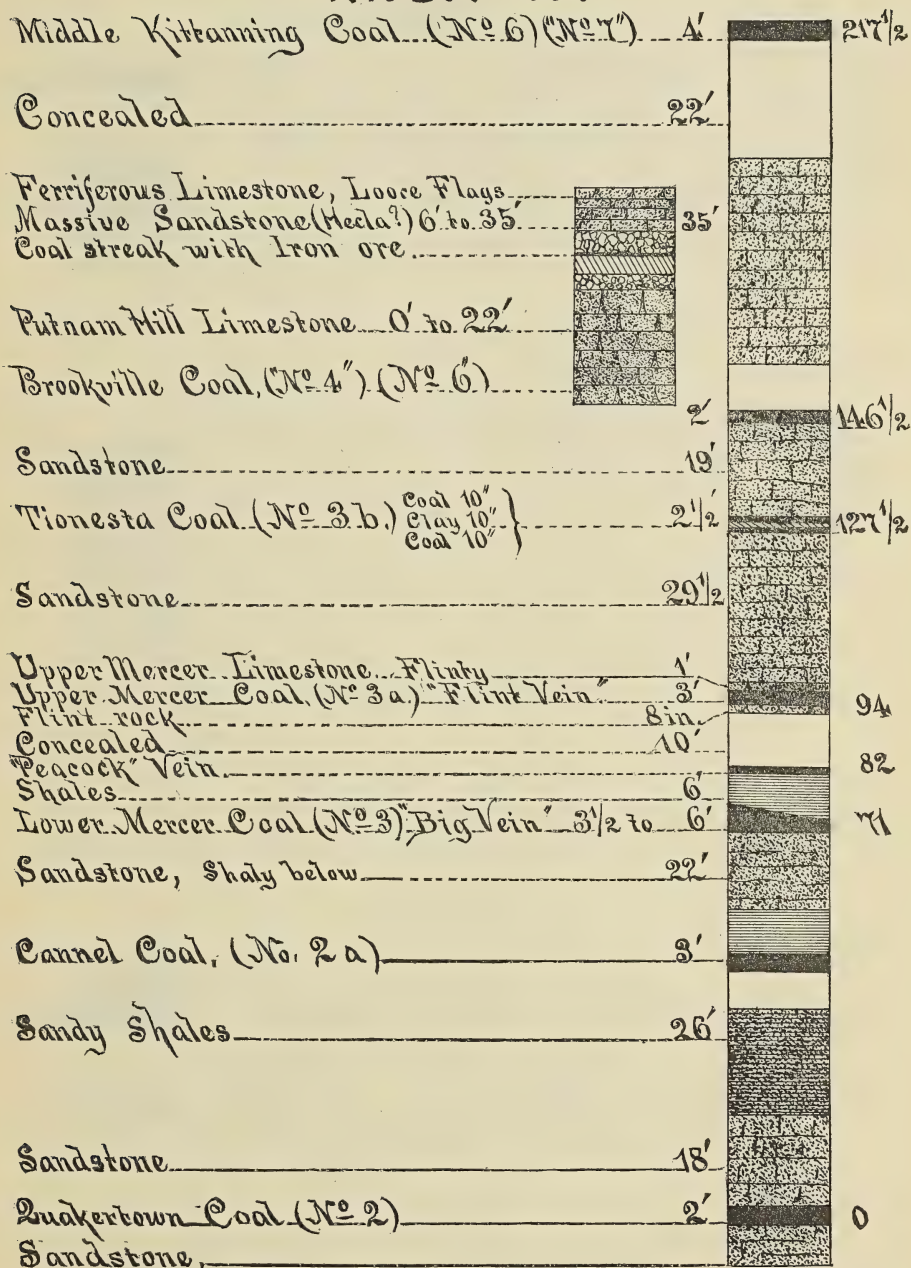 Middle Kittanning Coal (Nº 6) ("Nº 7") 4' 217 1/2
Concealed 22'
Ferriferous Limestone, Loose Flags
Massive Sandstone (Hecla?) 6' to 35' 35'
Coal streak with Iron ore
Putnam Hill Limestone 0' to 22'
Brookville Coal, ("Nº 4") (Nº 6)
2' 146 1/2
Sandstone 19'
Tionesta Coal (Nº 3 b.) Coal 10" Clay 10" Coal 10" } 2 1/2' 127 1/2
Sandstone 29 1/2
Upper Mercer Limestone Flinty 1'
Upper Mercer Coal, (Nº 3 a) "Flint Vein" 3' 94
Flint rock 8 in.
Concealed 10'
"Peacock" Vein 82
Shales 6'
Lower Mercer Coal (Nº 3) "Big Vein" 3 1/2 to 6' 71
Sandstone, Shaly below 22'
Cannel Coal, (No. 2 a) 3'
Sandy Shales 26'
Sandstone 18'
Quakertown Coal (Nº 2) 2' 0
Sandstone,